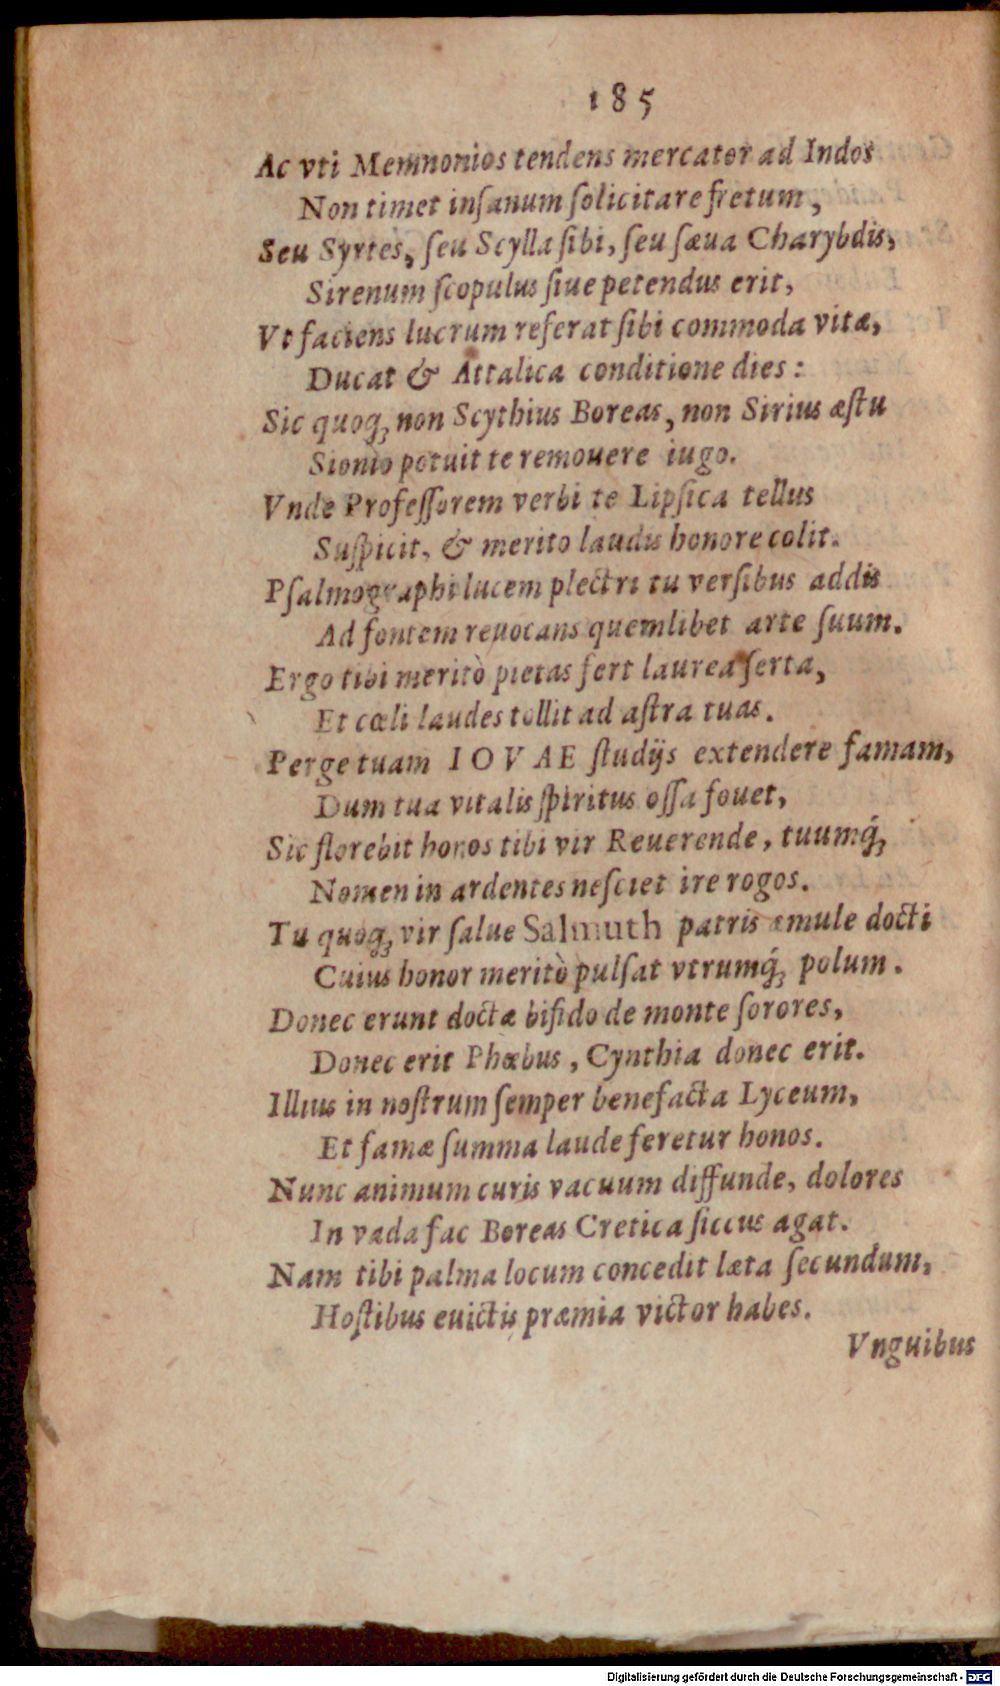 185
Ac vti Memnonios tendens mercator ad Indos
Non timet inſanum ſolicitare fretum,
Seu Syrtes, ſeu Scylla ſibi, ſeu ſæua Charybdis,
Sirenum ſcopulus ſiue petendus erit,
Vt faciens lucrum referat ſibi commoda vitæ,
Ducat & Attalica conditione dies:
Sic quoq; non Scythius Boreas, non Sirius æſtu
Sionio potuit te remouere iugo.
Vnde Profeſſorem verbi te Lipſica tellus
Suſpicit, & merito laudis honore colit.
Pſalmographi lucem plectri tu verſibus addis
Ad fontem reuocans quemlibet arte ſuum.
Ergo tibi meritò pietas fert laurea ſerta,
Et cœli laudes tollit ad aſtra tuas.
Perge tuam IOVAE ſtudijs extendere famam,
Dum tua vitalis ſpiritus oſſa fouet,
Sic florebit honos tibi vir Reuerende, tuumq́;
Nomen in ardentes neſciet ire rogos.
Tu quoq; vir ſalue Salmuth patris æmule docti
Cuius honor meritò pulſat vtrumq́; polum.
Donec erunt doctæ bifido de monte ſorores,
Donec erit Phœbus, Cynthia donec erit.
Illius in noſtrum ſemper benefacta Lyceum,
Et famæ ſumma laude feretur honos.
Nunc animum curis vacuum diffunde, dolores
In vada fac Boreas Cretica ſiccus agat.
Nam tibi palma locum concedit læta ſecundum,
Hoſtibus euictis præmia victor habes.
Vnguibus
Digitalisierung gefördert durch die Deutsche Forschungsgemeinschaft - DFG